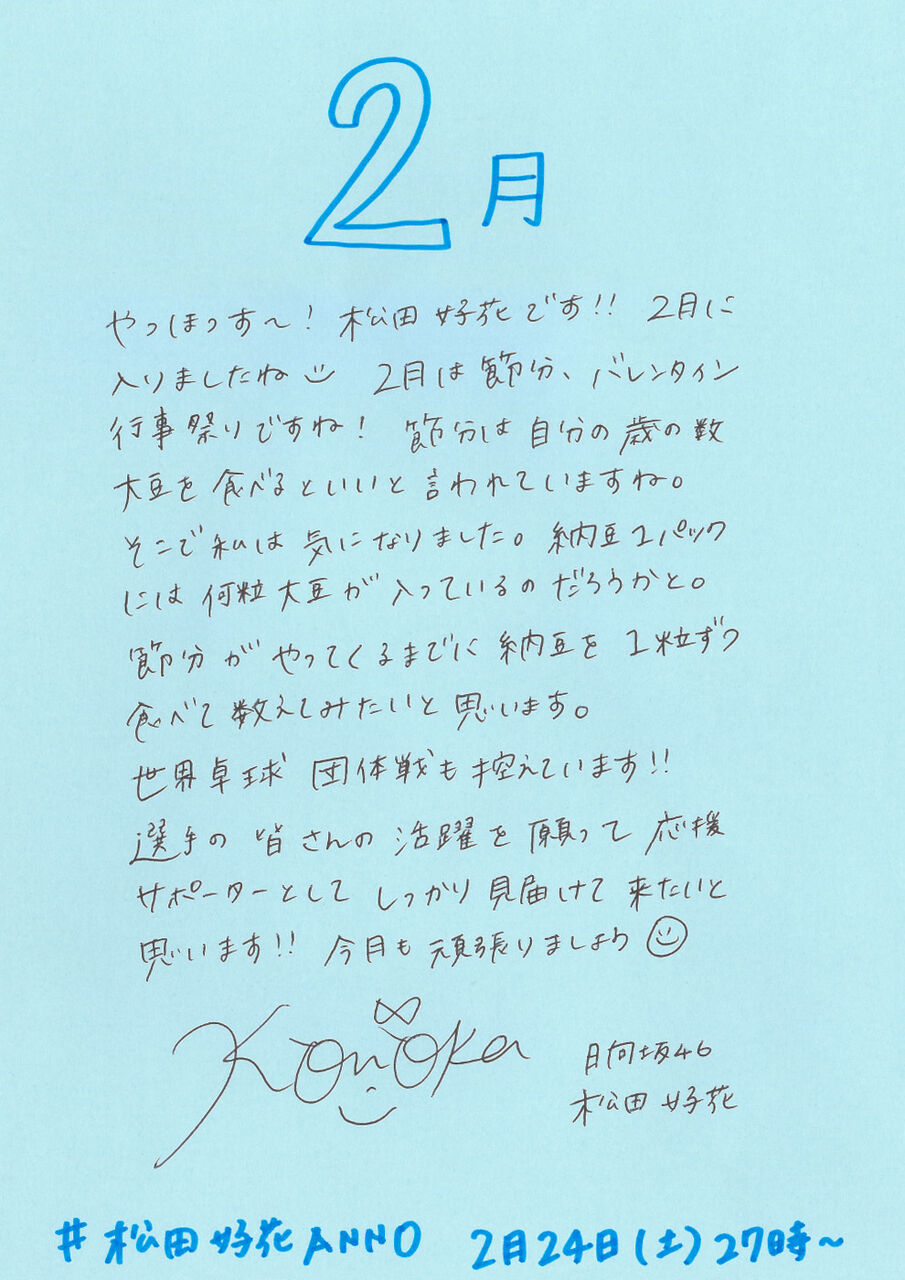 2月
やっほっす〜！ 松田好花です!! 2月に
入りましたね 2月は節分、バレンタイン
行事祭りですね！ 節分は自分の歳の数
大豆を食べるといいと言われていますね。
そこで私は気になりました。納豆1パック
には何粒大豆が入っているのだろうかと。
節分がやってくるまでに納豆を1粒ずつ
食べて数えてみたいと思います。
世界卓球 団体戦も控えています!!
選手の皆さんの活躍を願って応援
サポーターとしてしっかり見届けて来たいと
思います!! 今月も頑張りましょう
Konoka
日向坂46
松田好花
#松田好花ANN0 2月24日(土)27時〜